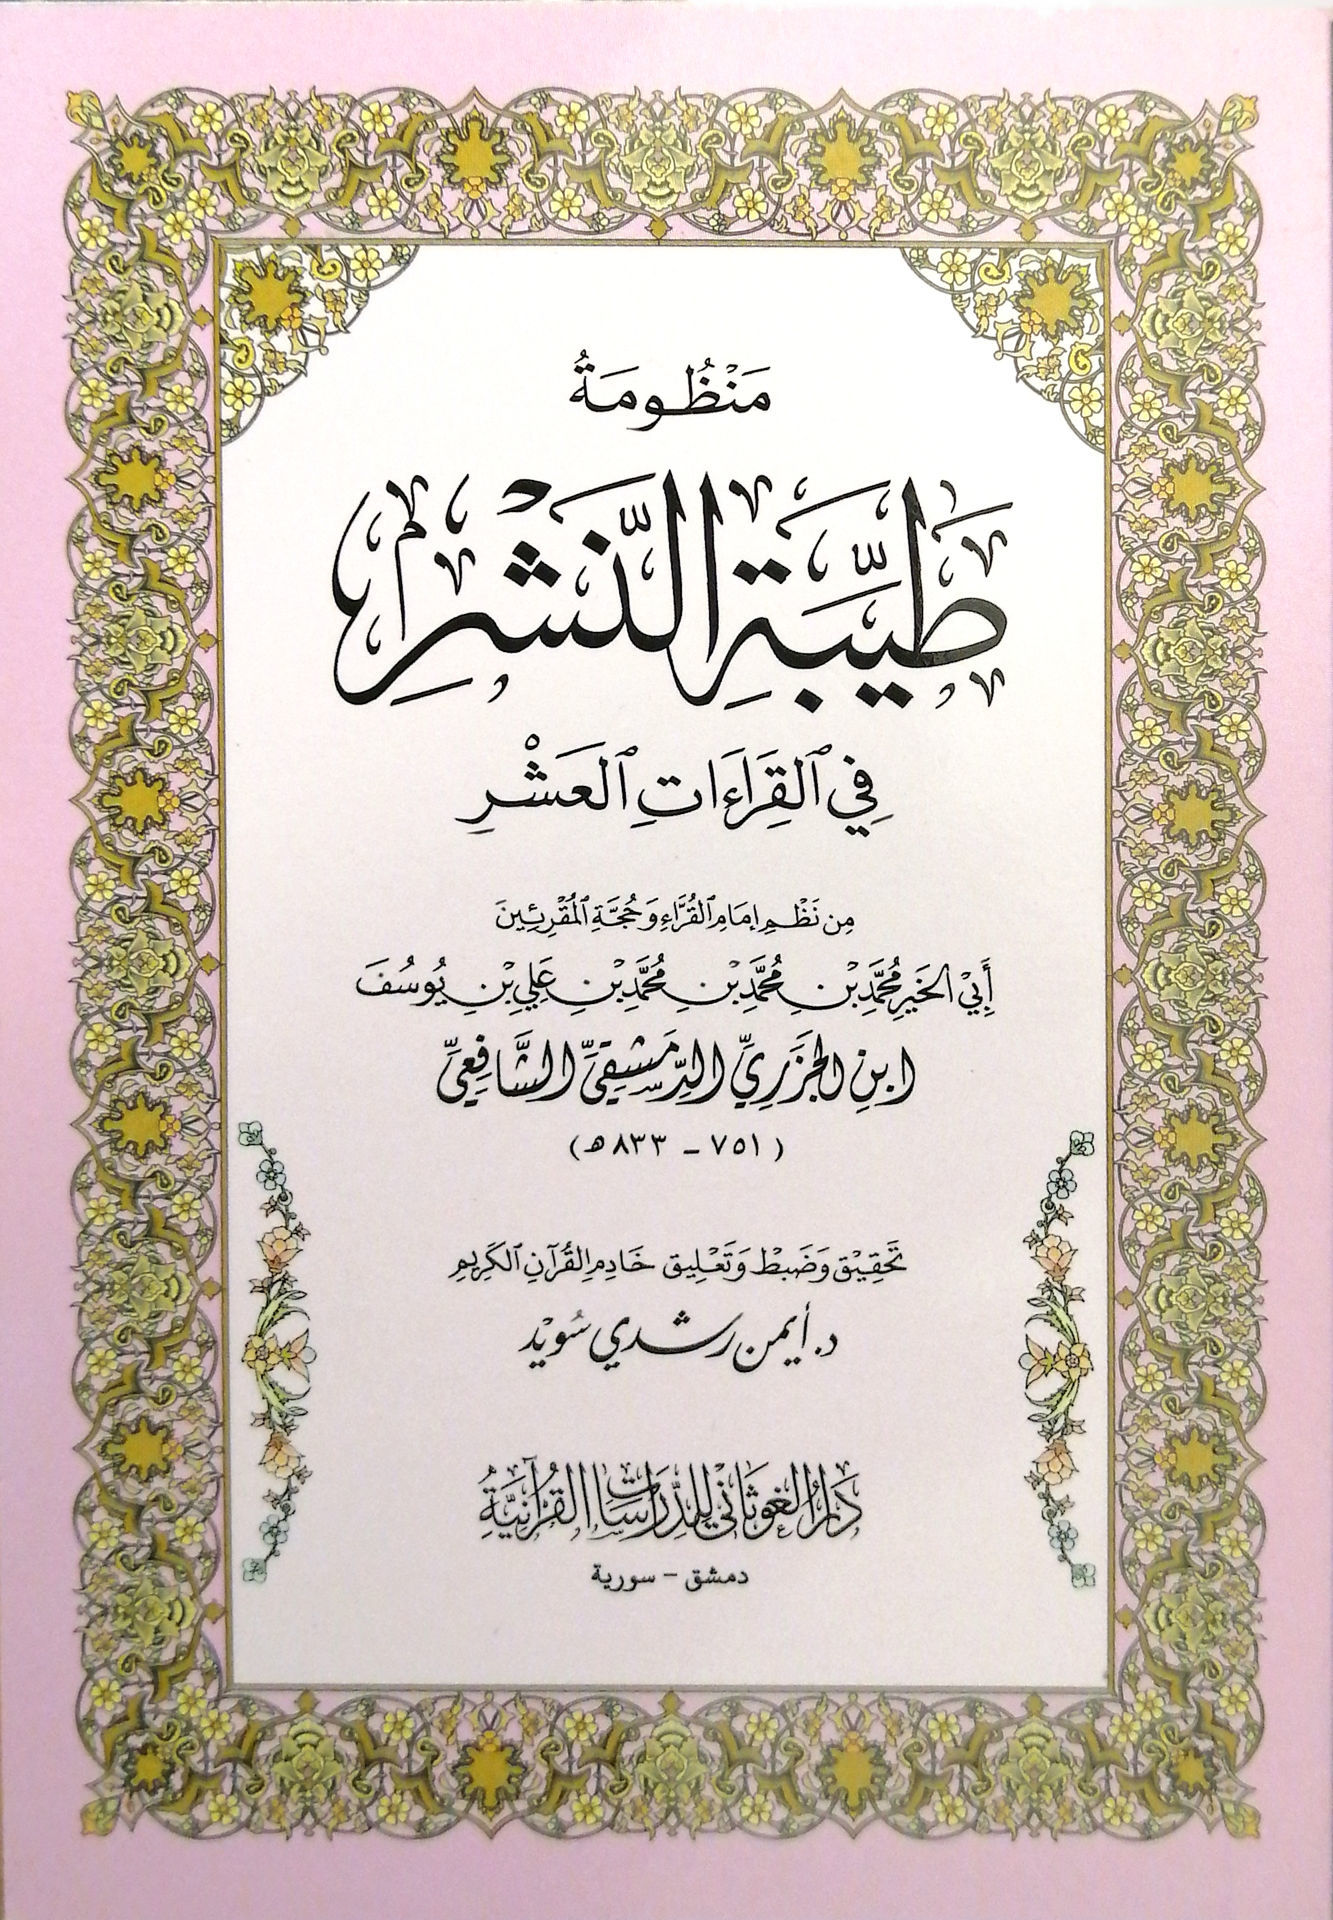 مَنْظُومَةُ
طَيِّبَةِ النَّشْرِ
فِي ٱلْقِرَاءَاتِ ٱلْعَشْرِ
مِن نَظْمِ إِمَامِ ٱلْقُرَّاءِ وَحُجَّةِ ٱلْمُقْرِئِينَ
أَبِي الخَيْرِ مُحَمَّدِ بْنِ مُحَمَّدِ بْنِ مُحَمَّدِ بْنِ عَلِيِ بْنِ يُوسُفَ
ابنِ الجَزَرِيِّ الدِّمَشْقِيِّ الشَّافِعِيِّ
(٧٥١ - ٨٣٣ هـ)
تَحْقِيْق وَضَبْط وَتَعْلِيق خَادِمِ القُرْآنِ ٱلْكَرِيمِ
د. أيمن رشدي سُوَيْد
دَارُ الغَوْثَانِي لِلدِّرَاسَاتِ القُرْآنِيَّةِ
دمشق - سورية